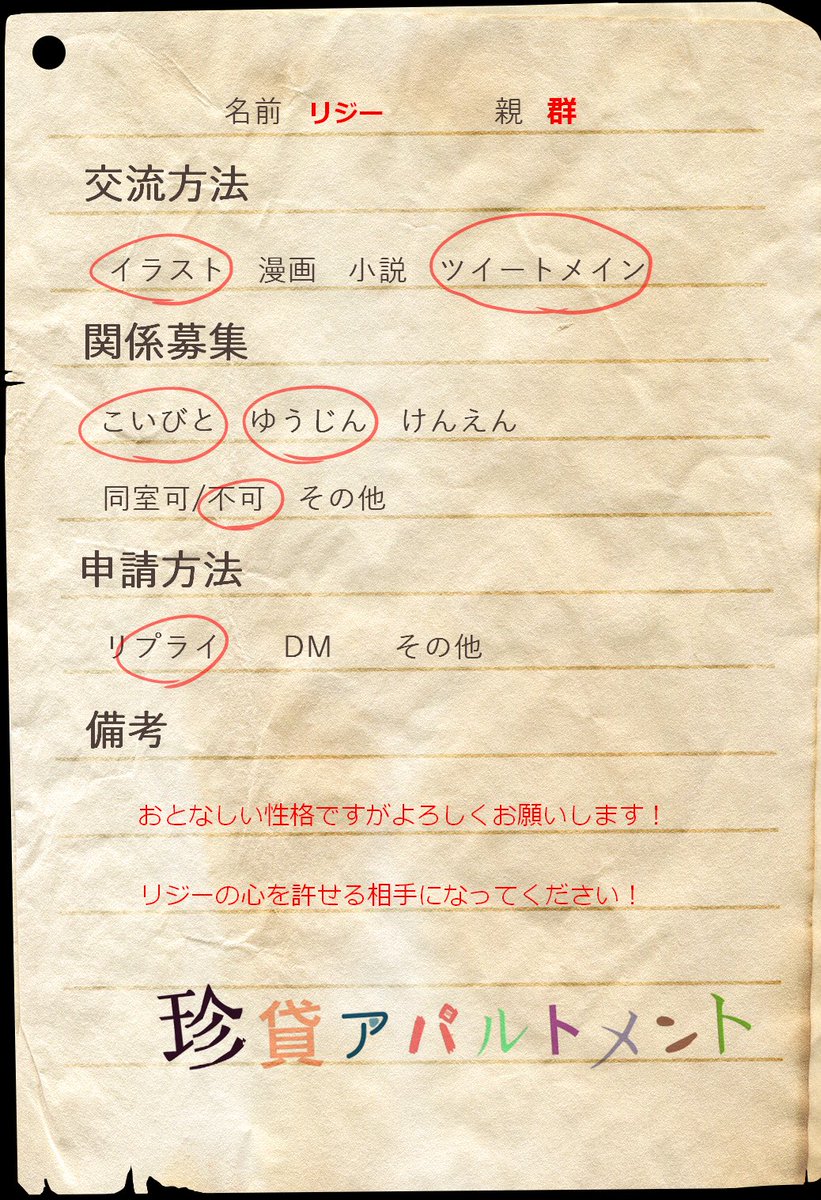 名前 リジー 親 群
交流方法
イラスト 漫画 小説 ツイートメイン
関係募集
こいびと ゆうじん けんえん
同室可/不可 その他
申請方法
リプライ DM その他
備考
おとなしい性格ですがよろしくお願いします！
リジーの心を許せる相手になってください！
珍貸アパルトメント